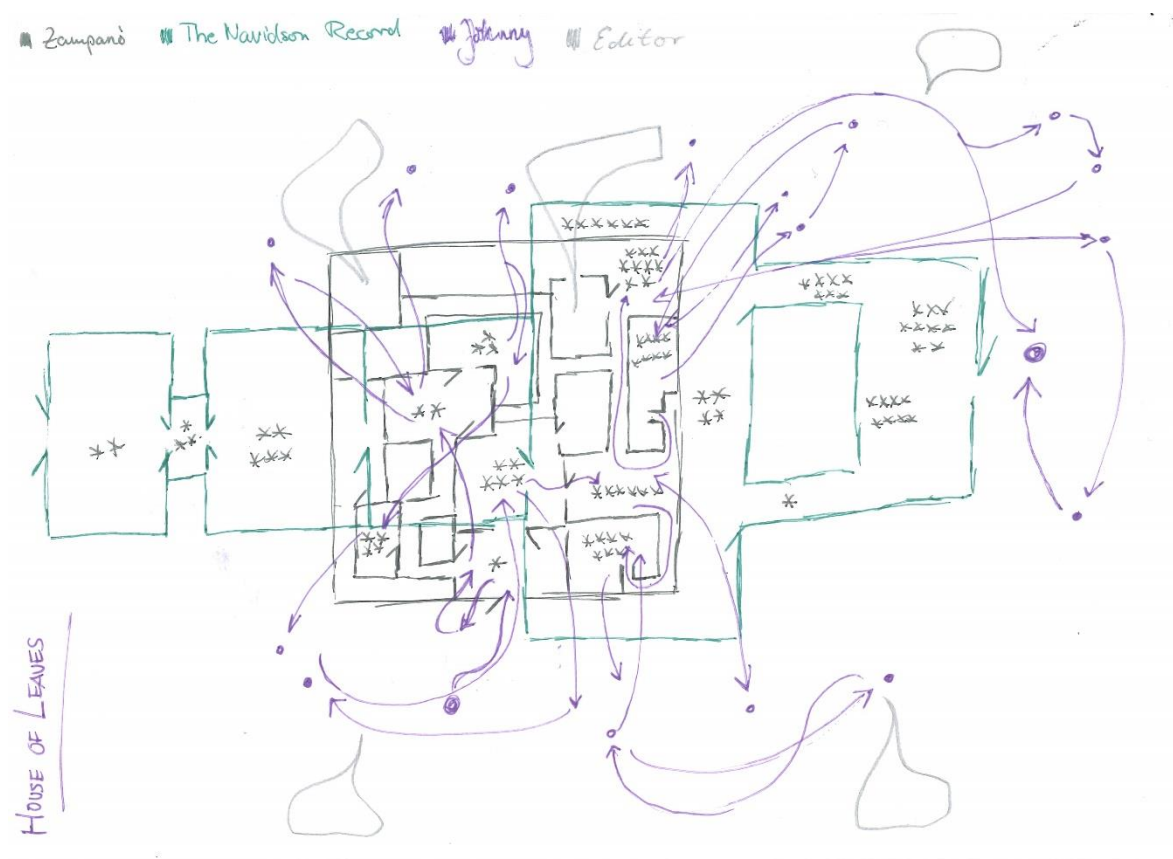 Zampanò The Navidson Record Johnny Editor
HOUSE OF LEAVES